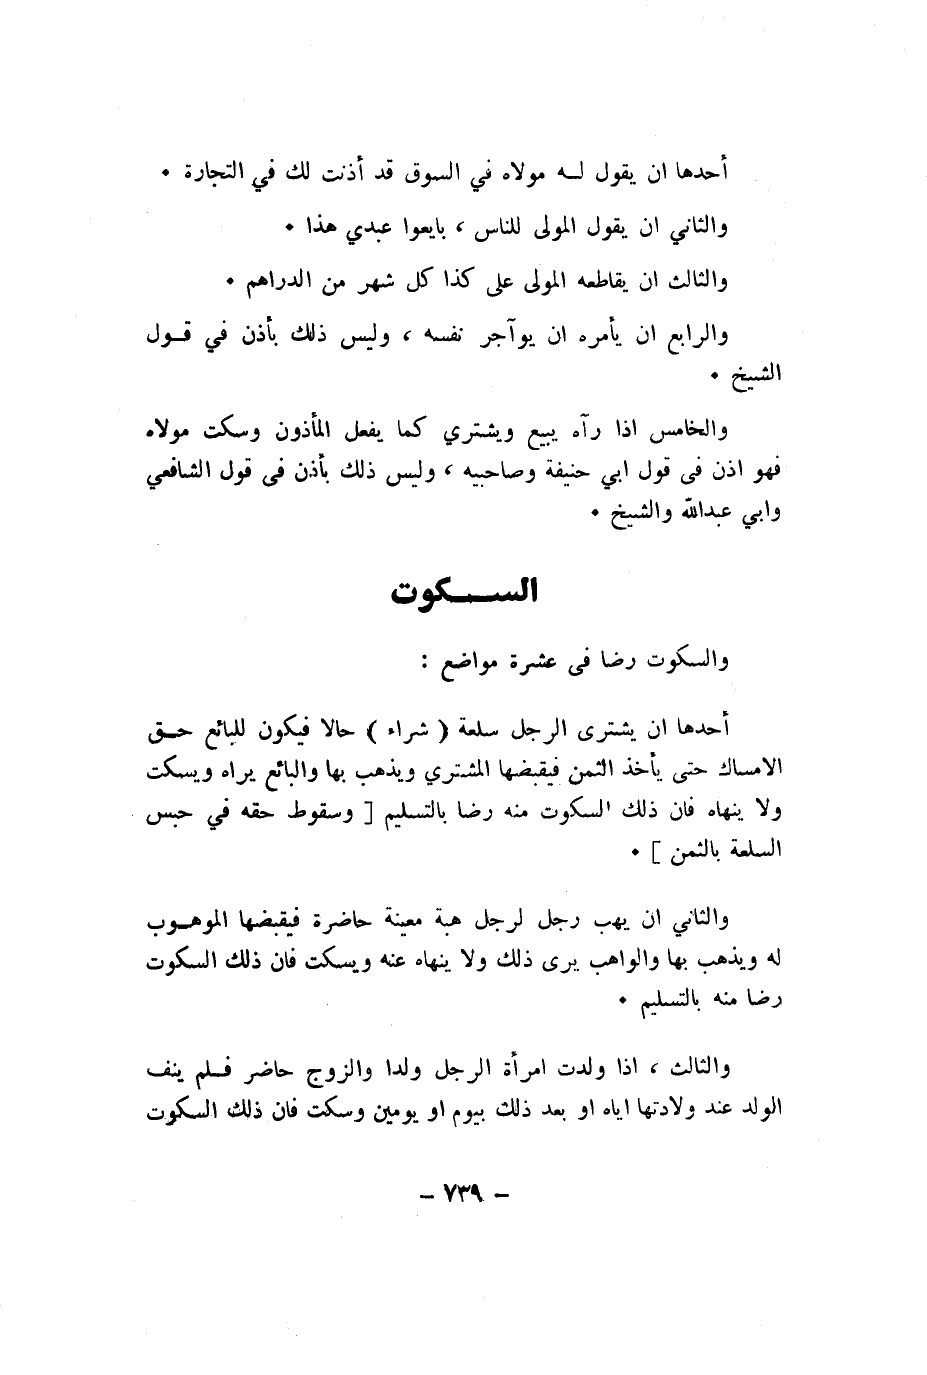 أحدها ان يقول لـه مولاه في السوق قد أذنت لك في التجارة .
والثاني ان يقول المولى للناس ، بايعوا عبدي هذا .
والثالث ان يقاطعه المولى على كذا كل شهر من الدراهم .
والرابع ان يأمره ان يوآجر نفسه ، وليس ذلك بأذن في قـول
الشيخ .
والخامس اذا رآه يبيع ويشتري كما يفعل المأذون وسكت مولاه
فهو اذن فى قول ابي حنيفة وصاحبيه ، وليس ذلك بأذن فى قول الشافعي
وابي عبدالله والشيخ .
الســـكوت
والسكوت رضا فى عشرة مواضع :
أحدها ان يشترى الرجل سلعة ( شراء ) حالا فيكون للبائع حـق
الامساك حتى يأخذ الثمن فيقبضها المشتري ويذهب بها والبائع يراه ويسكت
ولا ينهاه فان ذلك السكوت منه رضا بالتسليم [ وسقوط حقه في حبس
السلعة بالثمن ] .
والثاني ان يهب رجل لرجل هبة معينة حاضرة فيقبضها الموهـوب
له ويذهب بها والواهب يرى ذلك ولا ينهاه عنه ويسكت فان ذلك السكوت
رضا منه بالتسليم .
والثالث ، اذا ولدت امرأة الرجل ولدا والزوج حاضر فـلم ينف
الولد عند ولادتها اياه او بعد ذلك بيوم او يومين وسكت فان ذلك السكوت
– ٧٣٩ –